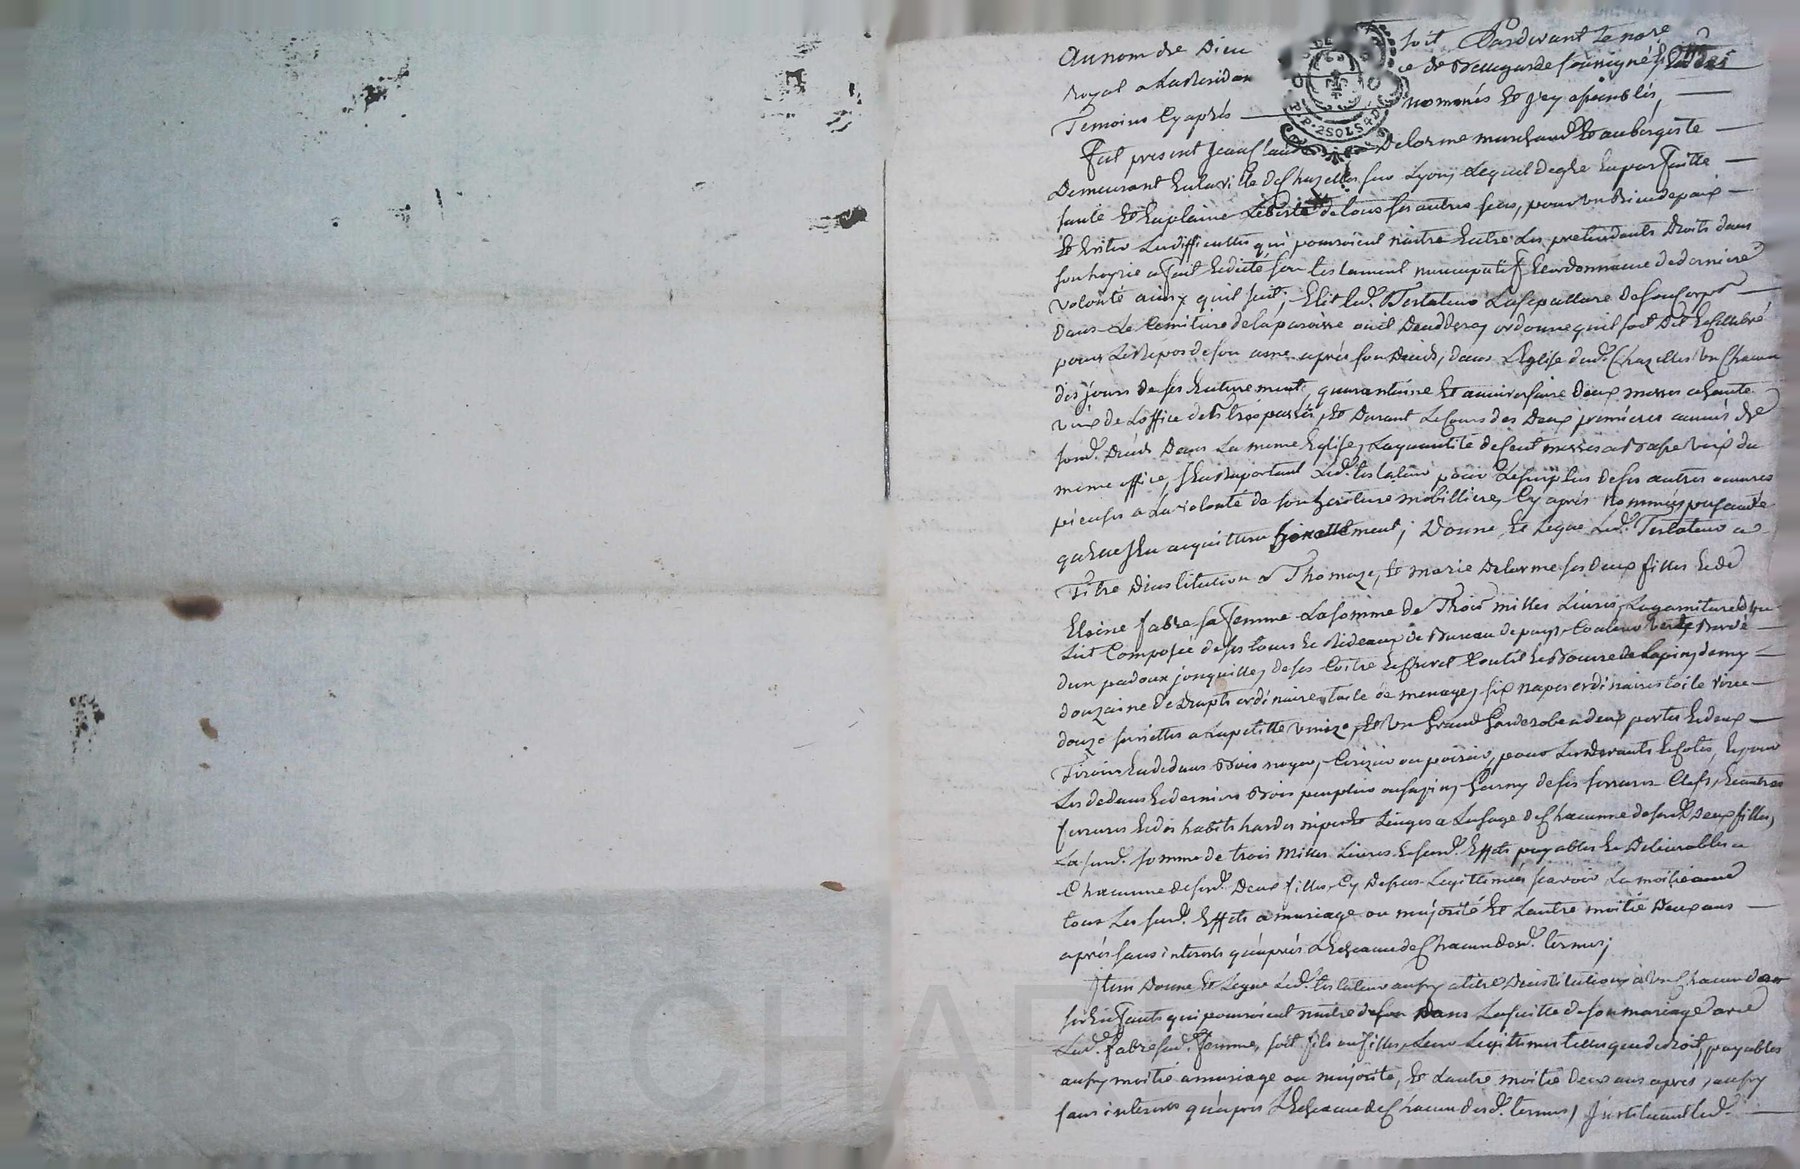 Au nom de Dieu soit Pardevant le nore
royal a la Residan ce de Bellegarde soussigné et
Temoins Cy après nommés et ycy assemblés,
P. P. 2 SOLS 4 D
Fut present Jean Claude Delorme marchand et aubergiste
Demeurant en la ville de Chazelles sur Lyon, Lequel de gre en parfaitte
santé et En plaine Liberté de tous ses autres sens, pour un Bien de paix
Et Eviter Les difficultes qui pouroient naitre Entre Les pretendants Droits dans
son hoyrie a fait Et dicté son testament nuncupatif Et ordonnance de derniere
volonté ainsy quil suit; Elit led. Testateur La sepulture de son corps
Dans Le Cemitiere de la paroisse ou il Decedera, ordonne quil soit Dit Et Cellebré
pour Le Repos de son ame après son Deces, dans L'Eglise dud. Chazelles un Chacun
des jours de ses Enterrement, quarantaine Et anniversaire Deux messes a haute
voix de L'office des trepassés, Et Durant Le Cours des Deux premieres années de
sond. Deces Dans La meme Eglise, La quantité de Cent messes a Basse voix du
meme office, s'En Raportant Led. testateur pour Le surplus de ses autres oeuvres
pieuses a La volonté de son heritiere mobilliere, Cy après nommée,
acquittera ; Donne Et Legue Led. Testateur a
Titre D'institution a Thomaze, Et Marie Delorme ses Deux filles Et de
fabre sa femme La somme de Trois milles Livres, La garniture d'un
Lit Composée de ses tours Et Rideaux de Bureau de pays, Couleur verte, Bordé
d'un padoux jonquille, de ses Coitre Et Chevet Coutil Et Bourre de Lapin, demy
douzaine de Draps ordinaires toile de menage, six napes ordinaires toile
douze serviettes a La petitte venize, Et un Grand Garderobe a deux portes Et deux
Tiroirs En dedans Bois noyer, Cerizier ou poirier, pour Les devants Et Cotés, Et pour
Les dedans Et derniers Bois peuplier ou sapin, Garny de ses serrures Clefs, Et autres
ferrures Et des habits hardes nipes Et Linges a L'usage de Chacunne de sesd. Deux filles,
La susd. somme de trois Milles Livres Et susd. Effets payables Et Delivrables a
Chacunne desd. Deux filles, Cy Dessus Legittimées scavoir La moitié avec
tous Les susd. Effets a mariage ou majorité Et L'autre moitié Deux ans
après sans interets qu'après L'Echeance de Chacun desd. termes;
Item Donne Et Legue Led. testateur aussy a titre D'institution a un Chacun des
ses Enfants qui pouroient naitre de son Dans La suitte de son mariage avec
Lad. fabre sad. femme, soit fils ou filles, Leur Legittimes telles que de droit, payables
aussy moitié a mariage ou majorité, Et L'autre moitié deux ans après, aussy
sans interets qu'après L'Echeance de Chacun desd. termes, Instituant led.